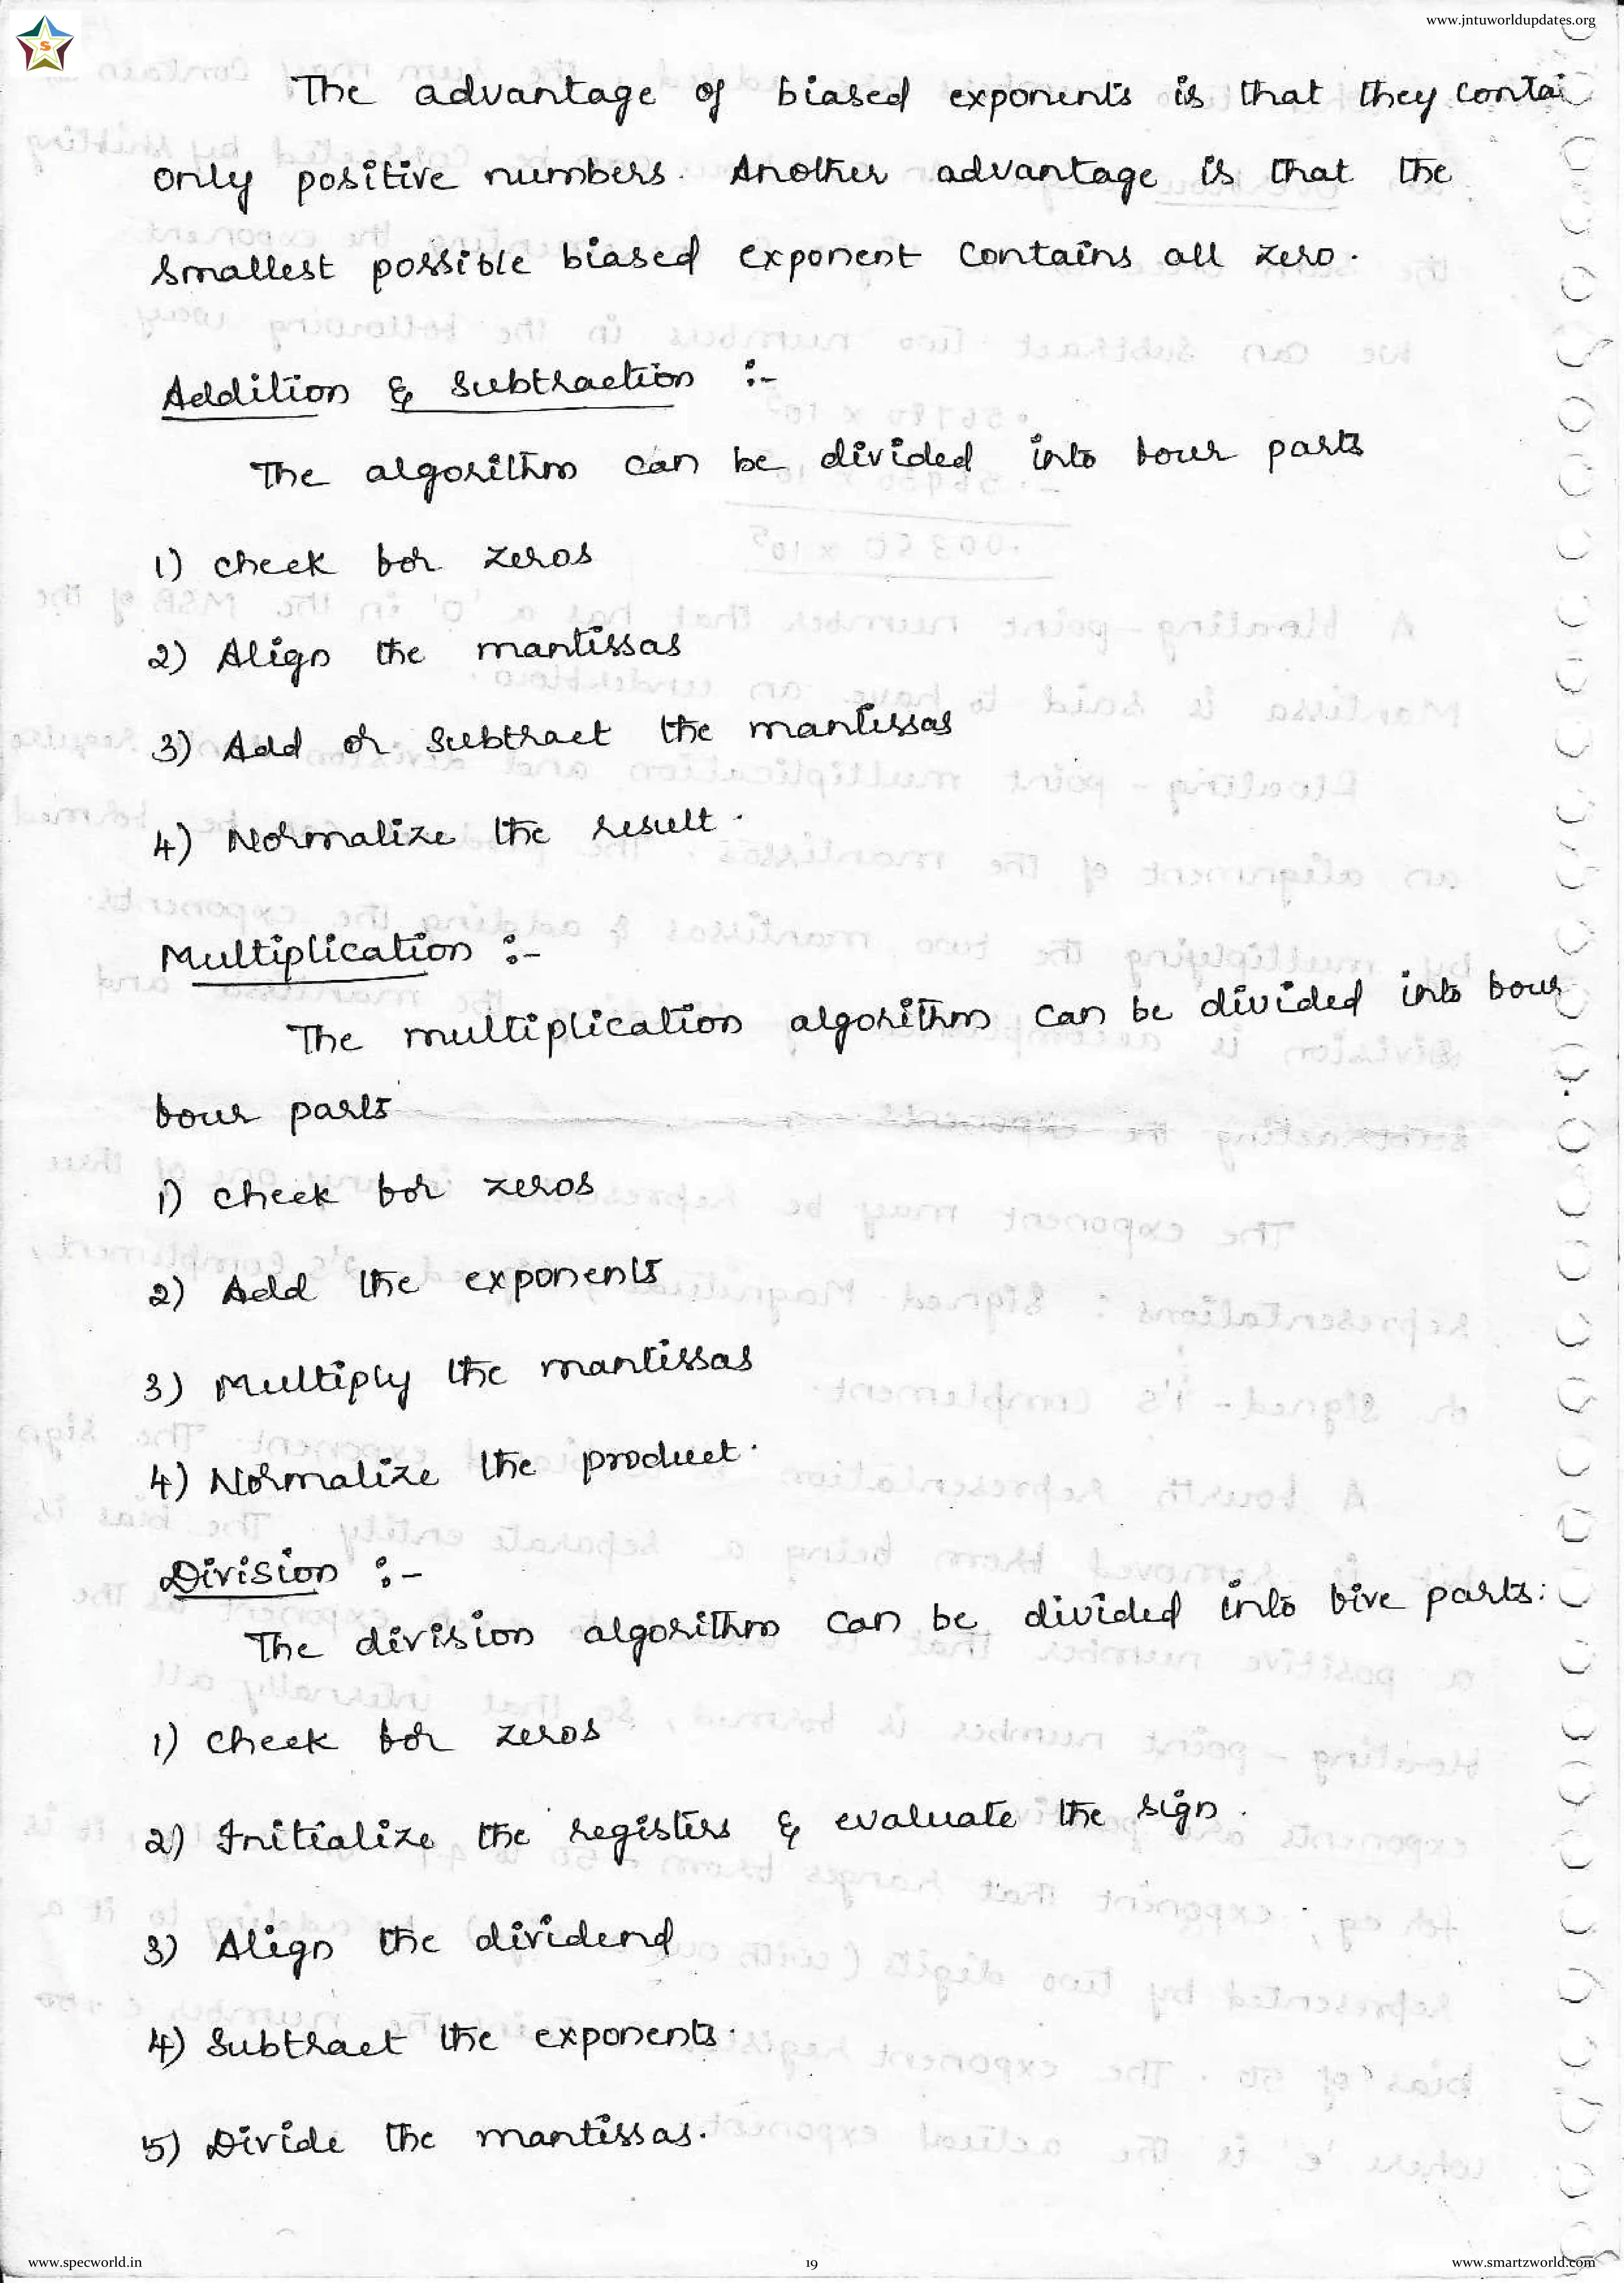 www.jntuworldupdates.org
S
The advantage of biased exponents is that they contai
only positive numbers. Another advantage is that the
smallest possible biased exponent contains all zero.
Addition & Subtraction :-
The algorithm can be divided into four parts
1) check for zeros
2) Align the mantissas
3) Add or subtract the mantissas
4) Normalize the result.
Multiplication :-
The multiplication algorithm can be divided into four
four parts
1) check for zeros
2) Add the exponents
3) Multiply the mantissas
4) Normalize the product.
Division :-
The division algorithm can be divided into five parts:
1) check for zeros
2) Initialize the registers & evaluate the sign.
3) Align the dividend
4) Subtract the exponents.
5) Divide the mantissas.
www.specworld.in 19 www.smartzworld.com